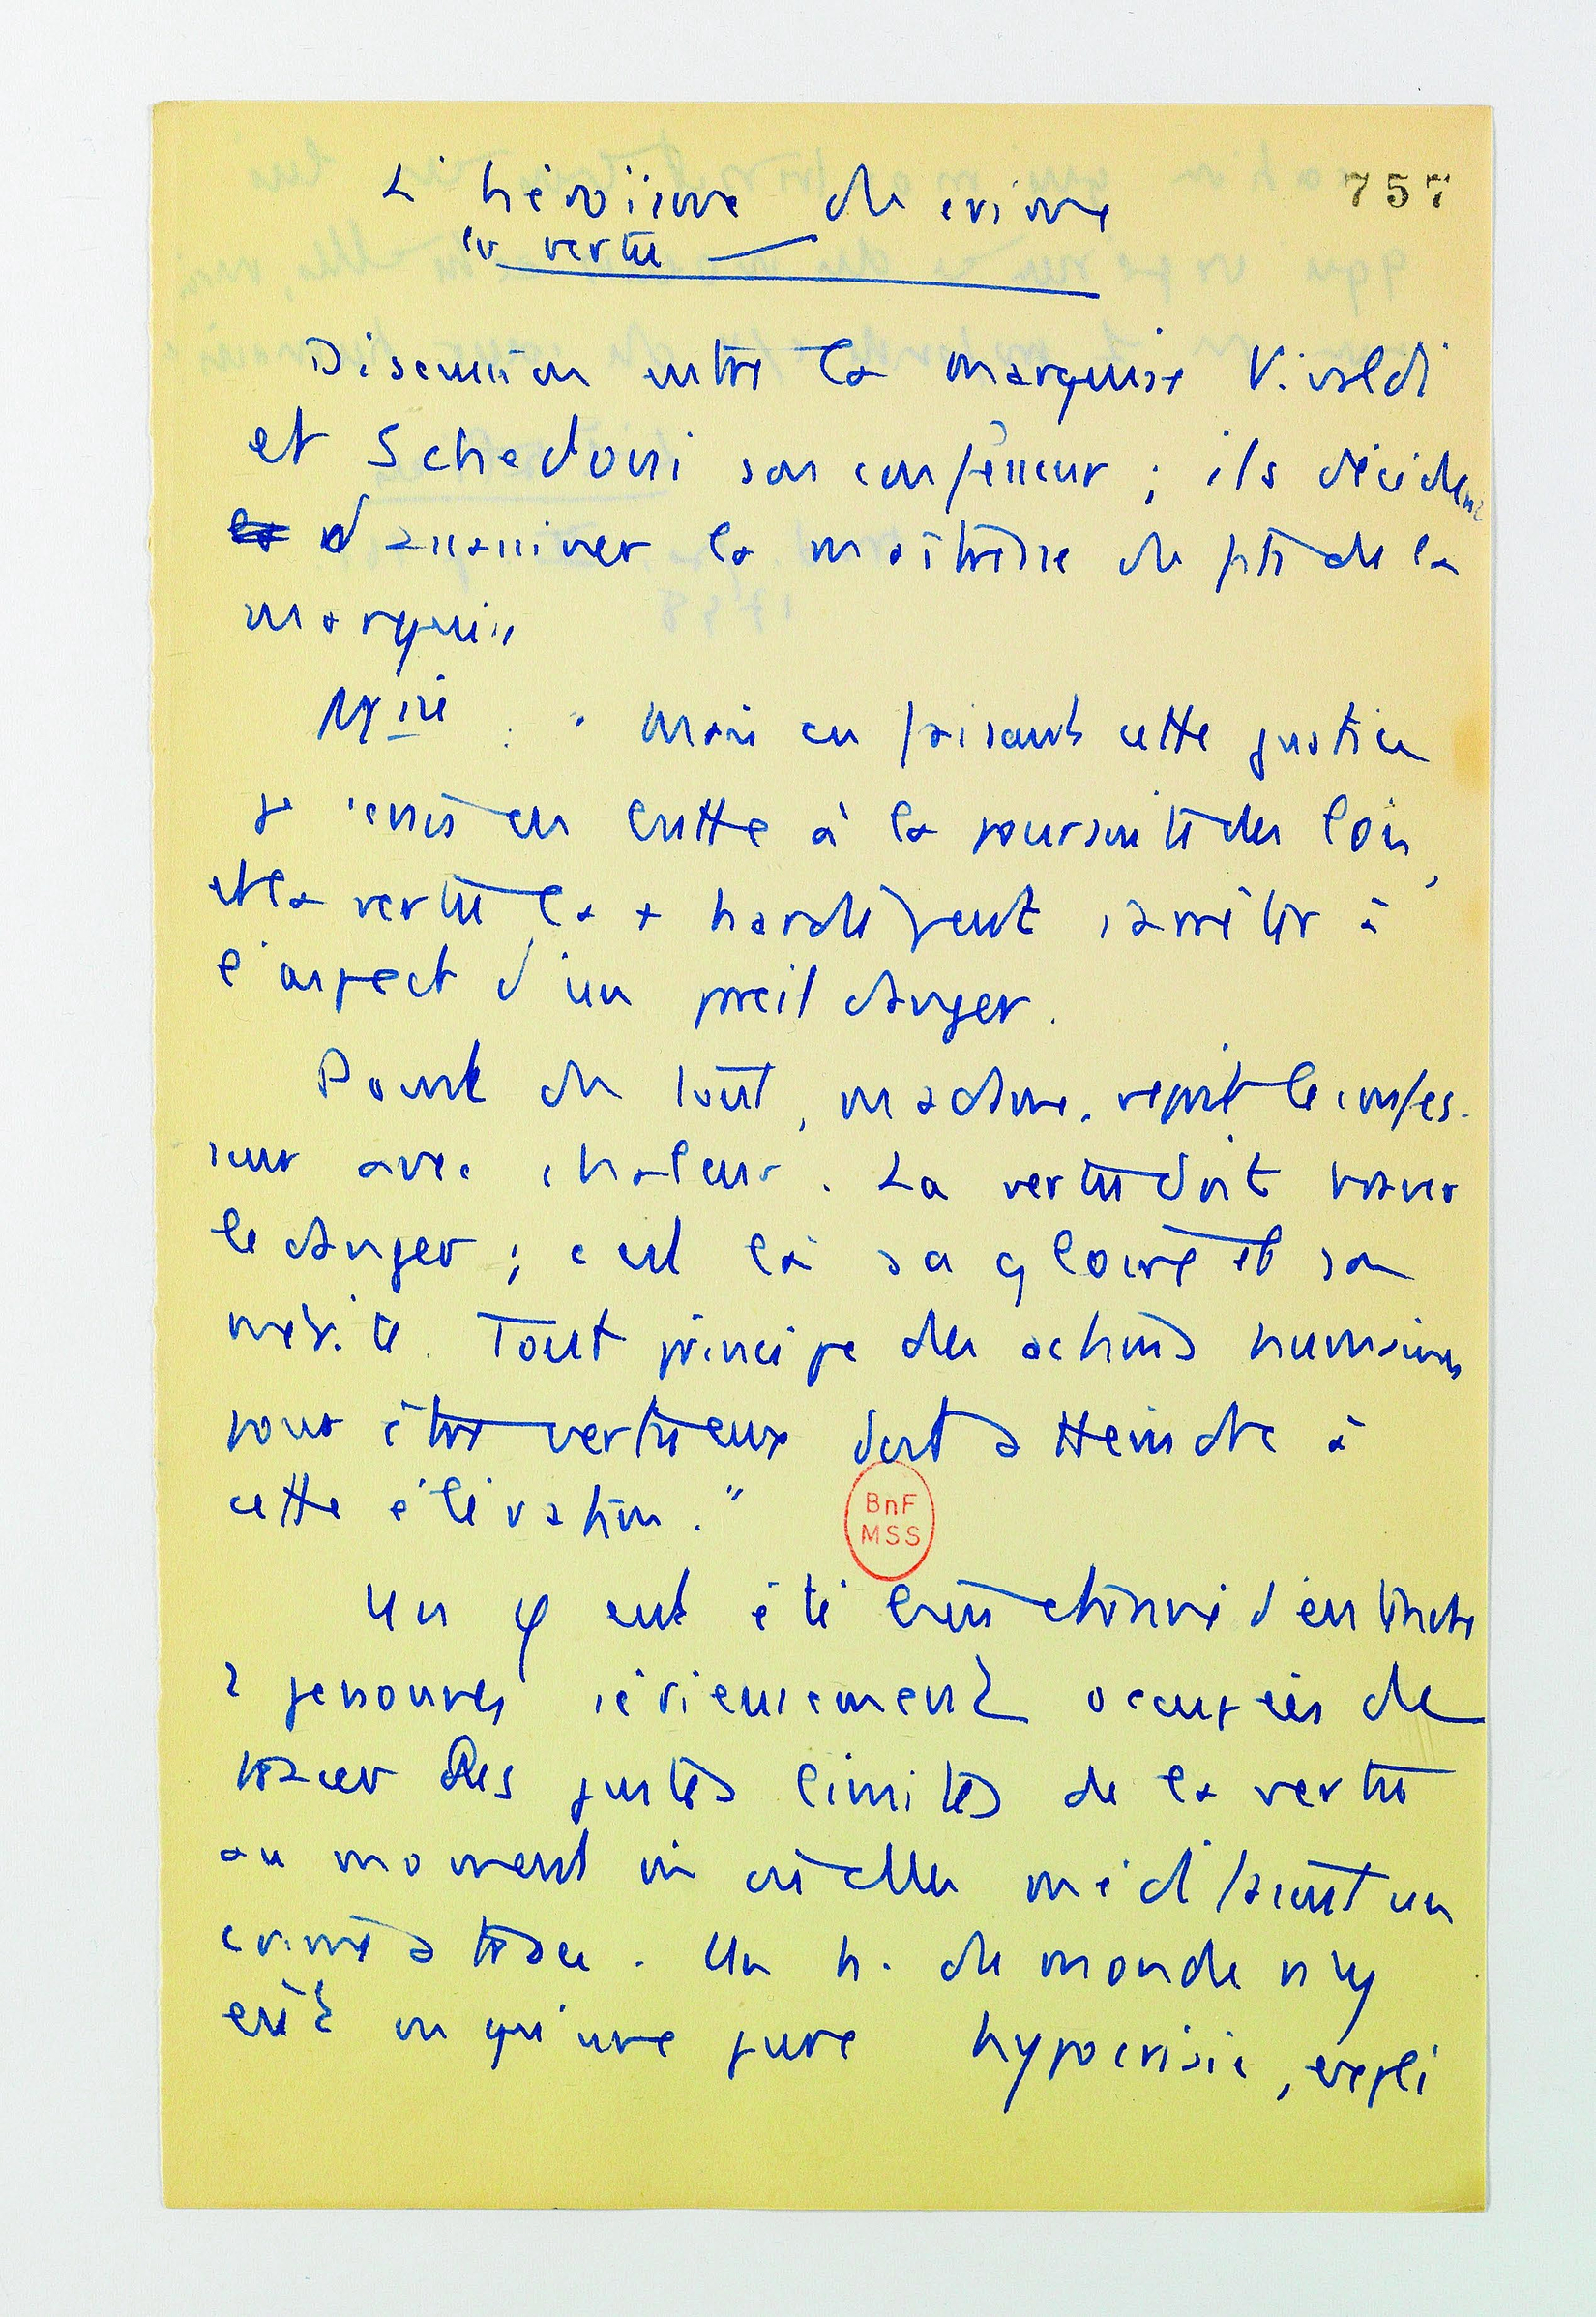 L'héroïsme du crime
757
la vertu
Discussion entre la marquise Vivaldi
et Schedoni son confesseur ; ils décident
la d'assassiner la maîtresse du fils de la
marquise
Mise : " Mais en faisant cette justice
je serais en butte à la poursuite des lois,
et la vertu la + hardie peut s'arrêter à
l'aspect d'un pareil danger.
Point du tout, madame, reprit le confes-
seur avec chaleur. La vertu doit braver
le danger ; c'est là sa gloire et son
mérite. Tout principe des actions humaines
pour être vertueux doit atteindre à
cette élévation. "
BnF
MSS
Un φ eut été bien étonné d'entendre
2 personnes sérieusement occupées de
tracer les justes limites de la vertu
au moment où elles méditaient un
crime atroce. Un h. du monde n'y
eût vu qu'une pure hypocrisie, expli